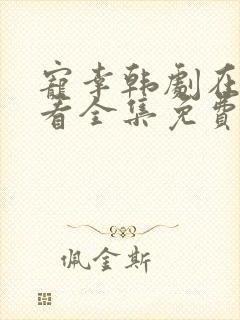 寵幸韩劇在
看全集免費
佩金斯